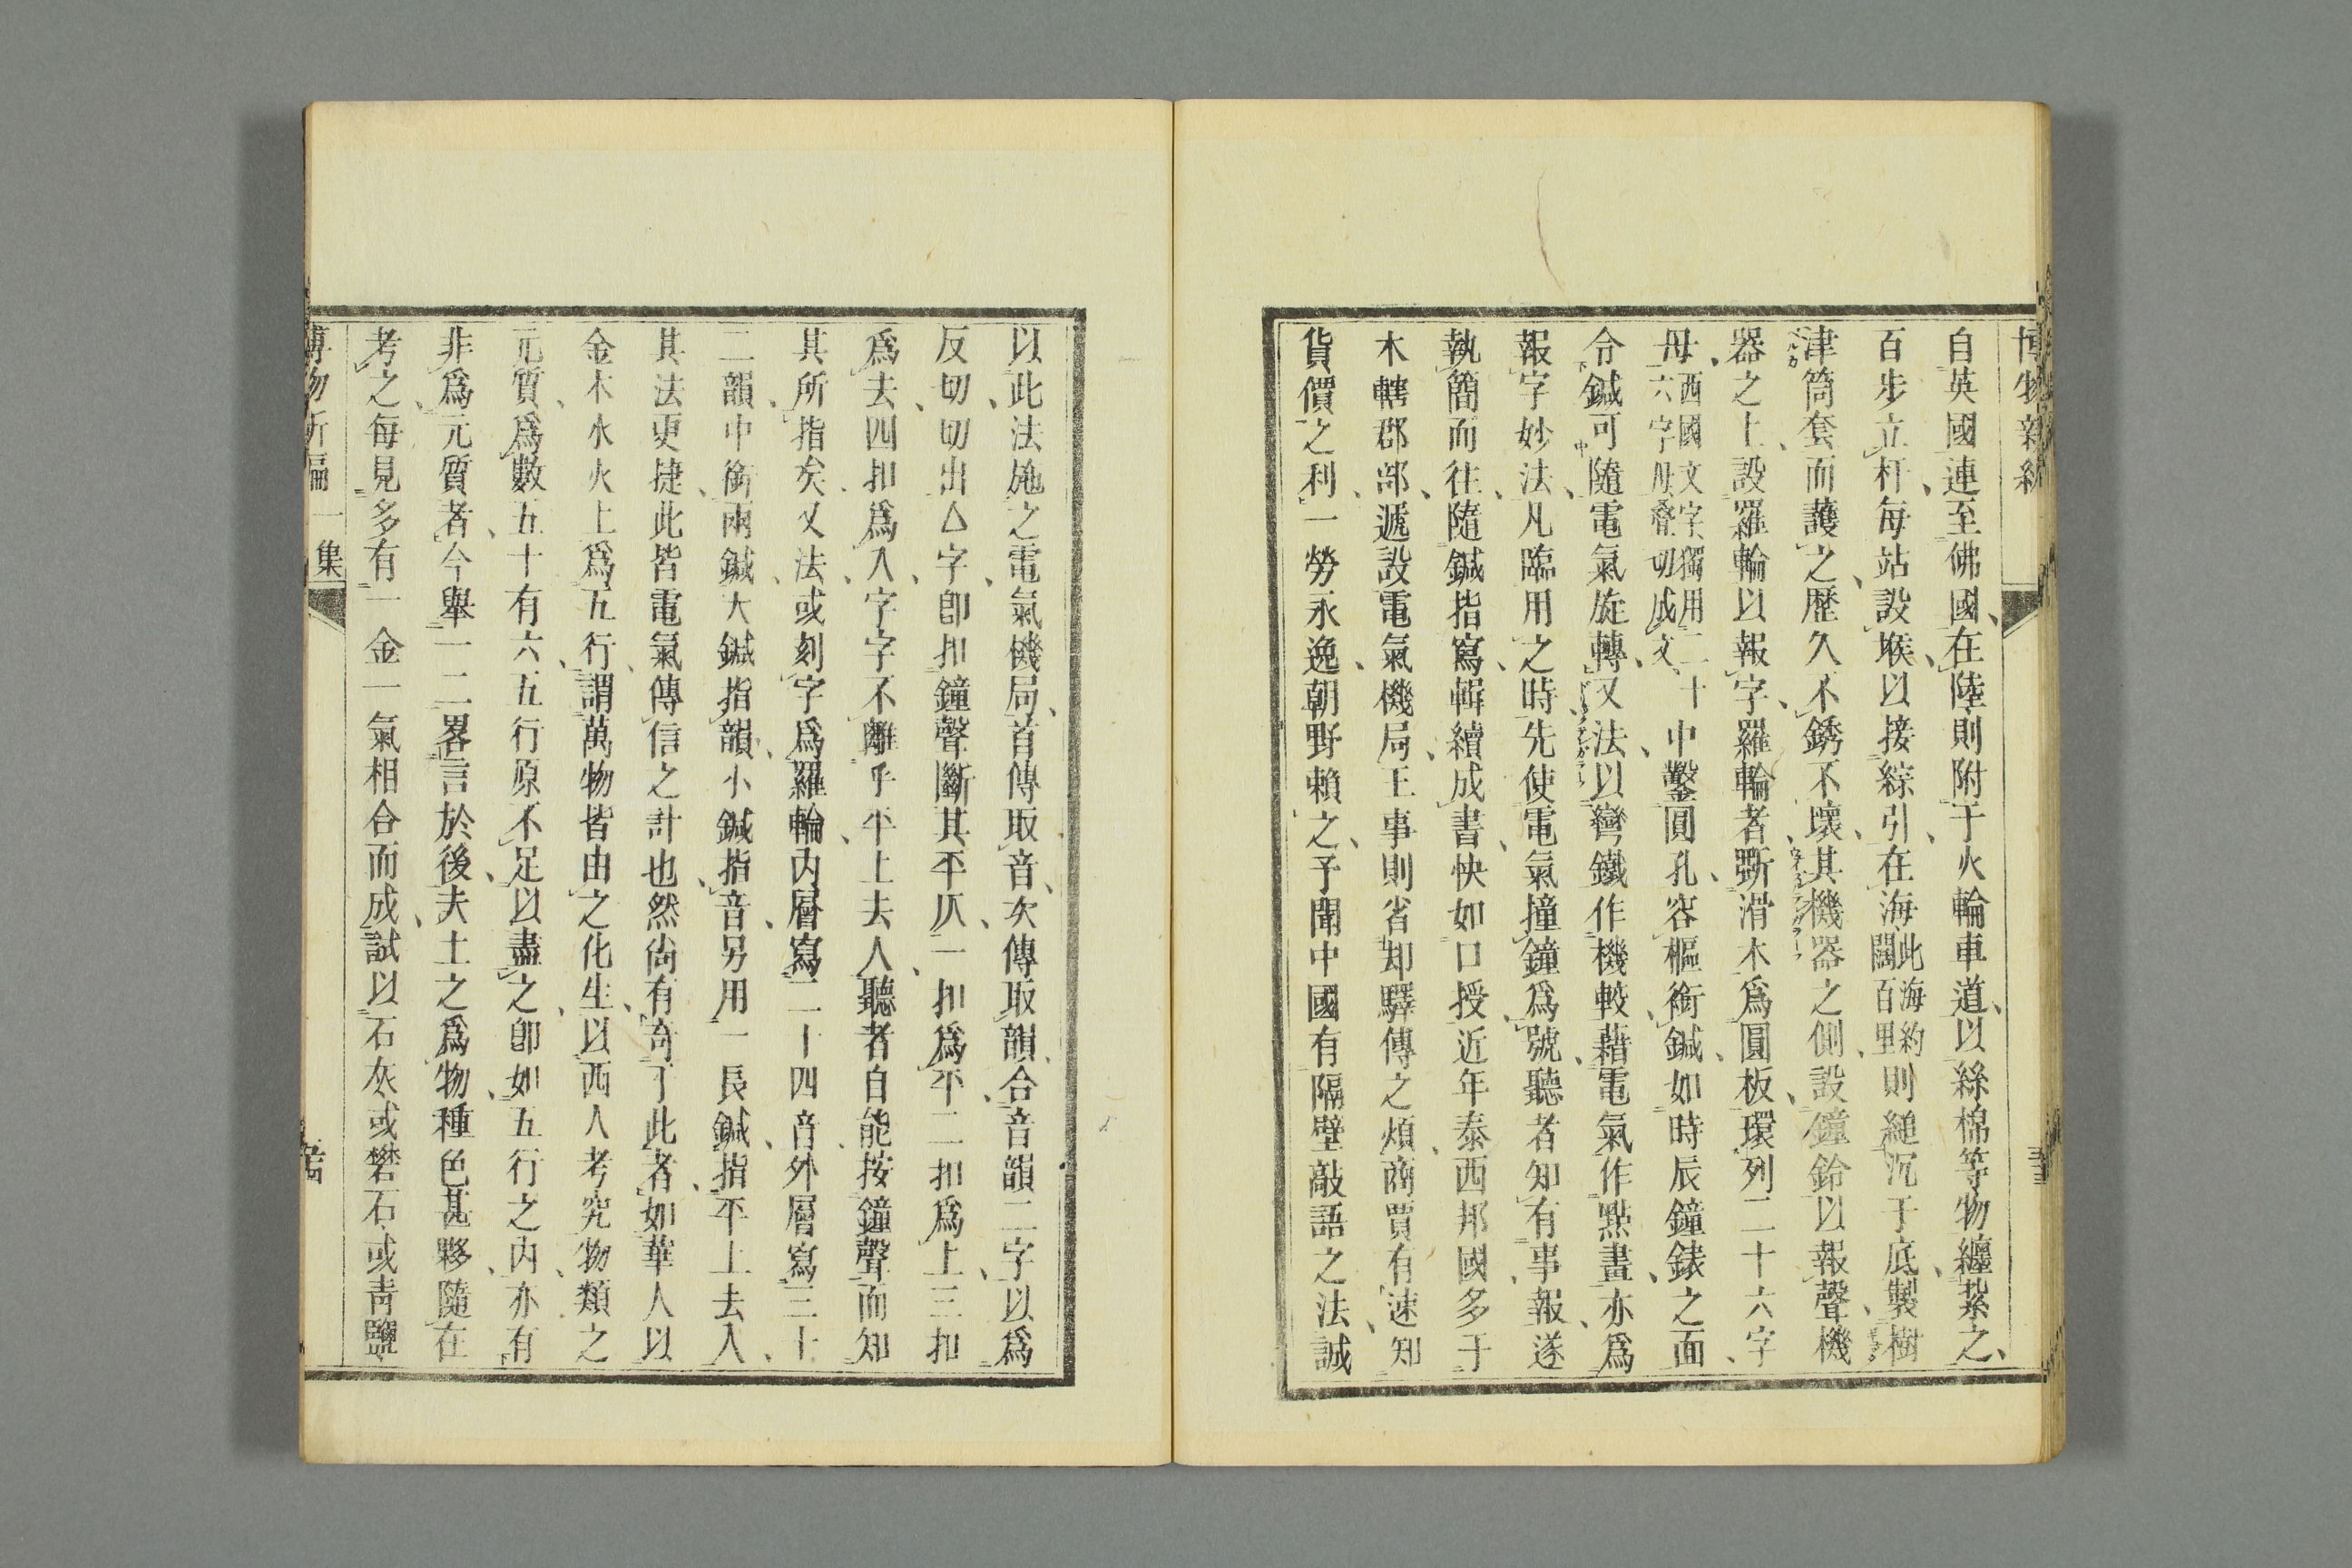 博物新編
自英國連至佛國、在陸則附于火輪車道、以絲棉等物纏紮之、
百步立杆、每站設堠、以接綜引、在海此海約闊百里則縋沉于底、製樹
津筒套而護之、歷久不銹不壞、其機器之側、設鐘鈴以報聲、機
器之上、設羅輪以報字、羅輪者、斲滑木爲圓板、環列二十六字
母、西國文字獨用二十六字母疊切成文中鑿圓孔、容樞銜鍼、如時辰鐘錶之面、
令鍼可隨電氣旋轉、又法、以彎鐵作機較、藉電氣作點畫、亦爲
報字妙法、凡臨用之時、先使電氣撞鐘爲號、聽者知有事報、遂
執簡而往、隨鍼指寫、輯續成書、快如口授、近年泰西邦國、多于
木轄郡部、遞設電氣機局、王事則省却驛傳之煩、商賈有速知
貨價之利、一勞永逸、朝野賴之、予聞中國有隔壁敲語之法、誠
以此法施之電氣機局、首傳取音、次傳取韻、合音韻二字以爲
反切、切出厶字、卽扣鐘聲斷其平仄、一扣爲平、二扣爲上、三扣
爲去、四扣爲入、字字不離乎平上去入、聽者自能按鐘聲而知
其所指矣、又法、或刻字爲羅輪、內層寫二十四音、外層寫三十
二韻、中銜兩鍼、大鍼指韻、小鍼指音、另用一長鍼、指平上去入、
其法更捷、此皆電氣傳信之計也、然尙有奇于此者、如華人以
金木水火土爲五行、謂萬物皆由之化生、以西人考究物類之
元質、爲數五十有六、五行原不足以盡之、卽如五行之內、亦有
非爲元質者、今舉一二畧言於後、夫土之爲物、種色甚夥、隨在
考之、每見多有一金一氣相合而成、試以石灰或礬石、或靑鹽
博物新編 一集